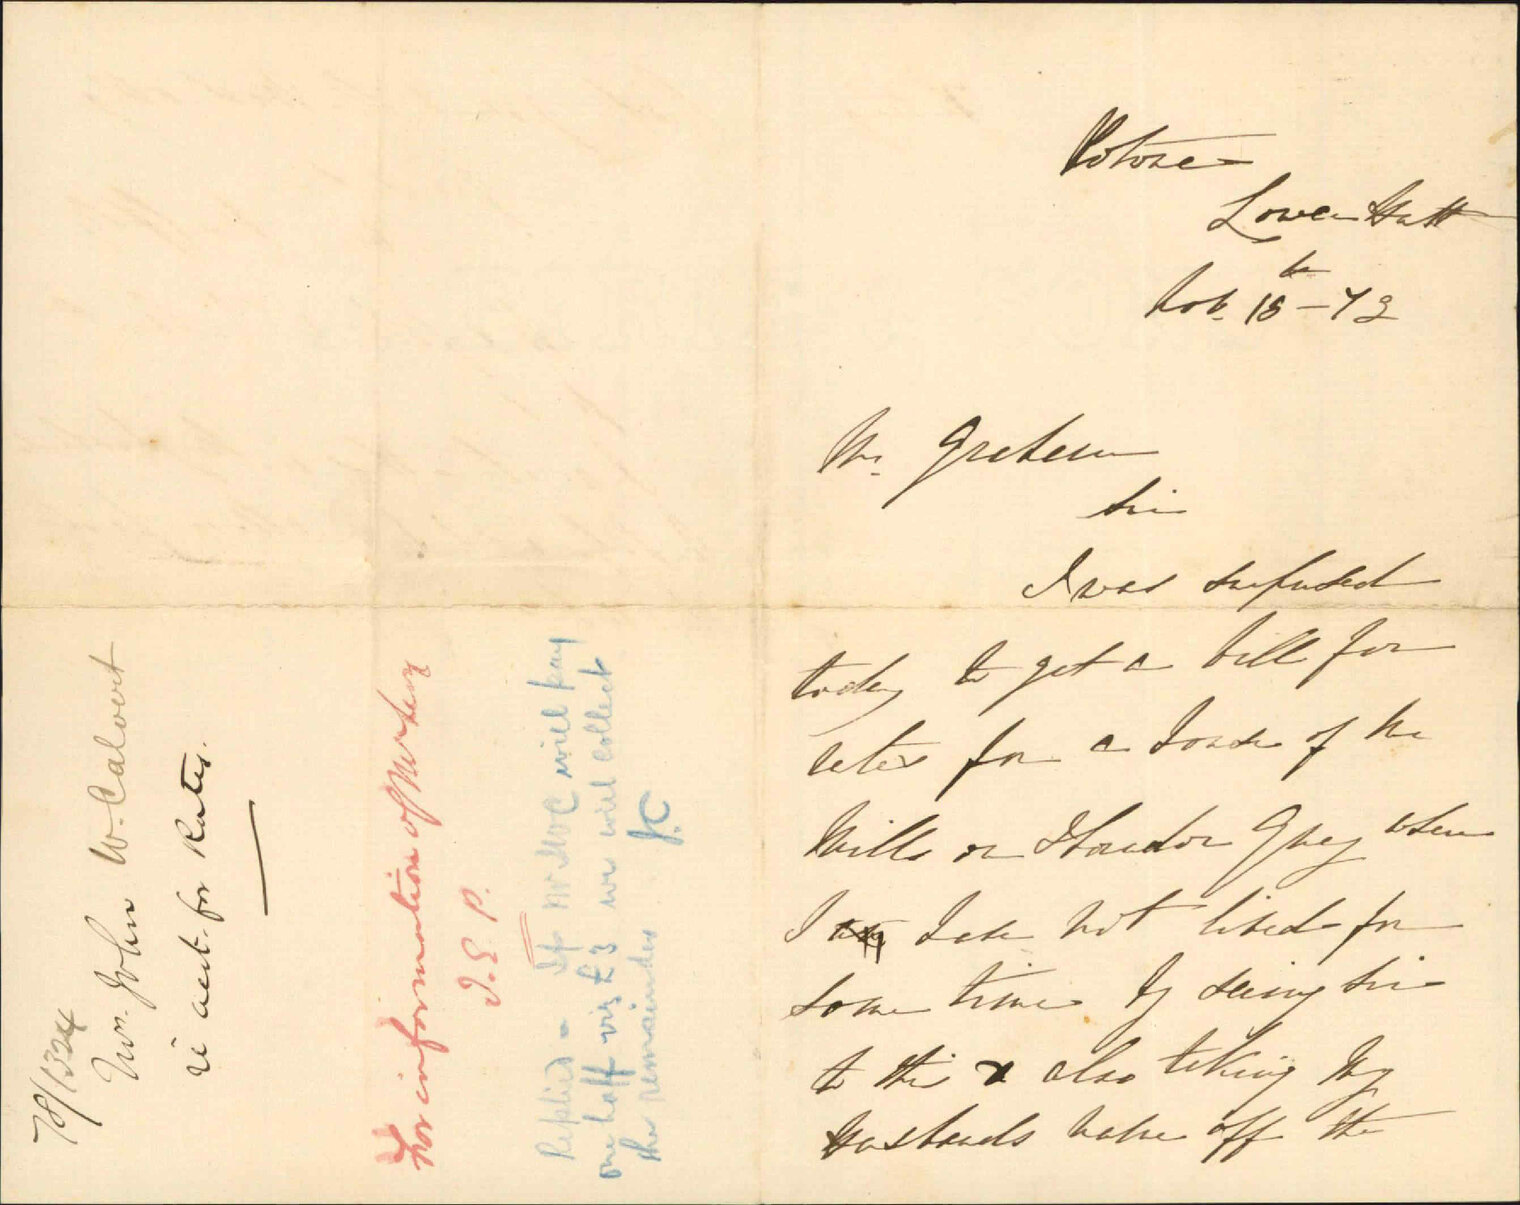 Petone
Lower Hutt
Nov. 18th - 72
Mr. Graham
Sir
I was surprised
today to get a bill for
rates for a house of Mr
Mills on Thorndon Quay where
I have not lived for
some time By seeing Sir
to this & also taking my
Husbands name off the
78/1324
Mrs. John W. Calvert
re acct. for Rates.
For information of
J.E.P.
Replied - If Mr McC will pay
one half viz £3 we will collect
the remainder J.C